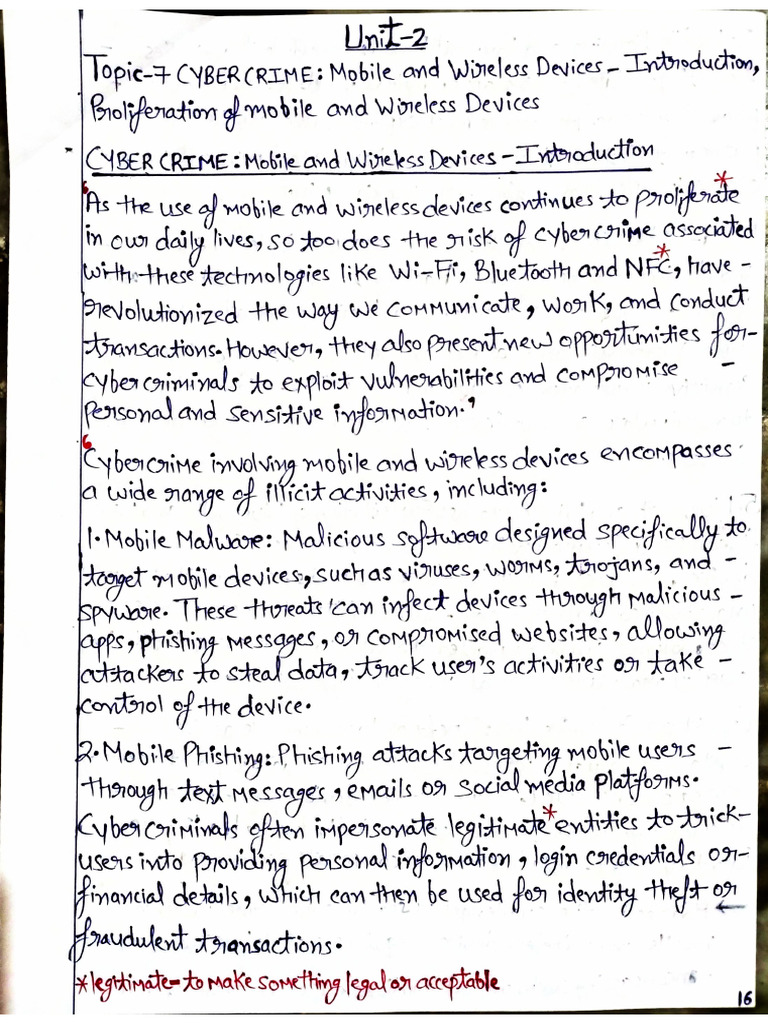 Unit-2
Topic-7 CYBER CRIME: Mobile and Wireless Devices - Introduction,
Proliferation of mobile and Wireless Devices
CYBER CRIME: Mobile and Wireless Devices - Introduction
"As the use of mobile and wireless devices continues to proliferate*
in our daily lives, so too does the risk of cybercrime associated
with these technologies like Wi-Fi, Bluetooth and NFC*, have -
revolutionized the way we communicate, work, and conduct
transactions. However, they also present new opportunities for-
cybercriminals to exploit vulnerabilities and compromise -
personal and sensitive information."
"Cybercrime involving mobile and wireless devices encompasses
a wide range of illicit activities, including:
1. Mobile Malware: Malicious software designed specifically to
target mobile devices, such as viruses, worms, trojans, and -
spyware. These threats can infect devices through malicious -
apps, phishing messages, or compromised websites, allowing
attackers to steal data, track user's activities or take -
control of the device.
2. Mobile Phishing: Phishing attacks targeting mobile users -
through text messages, emails or social media platforms.
Cybercriminals often impersonate legitimate* entities to trick-
users into providing personal information, login credentials or-
financial details, which can then be used for identity theft or
fraudulent transactions.
*legitimate- to make something legal or acceptable
16